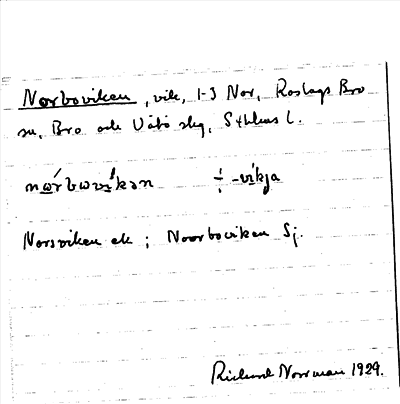 Norboviken, vik, 1-3 Nor, Roslags Bro
sn, Bro och Vätö skg, Sthlms l.
nώrbωvi̍kən ÷ -vi̍kja
Norsviken ek; Noorboviken Sj.
Rickard Norrman 1929.